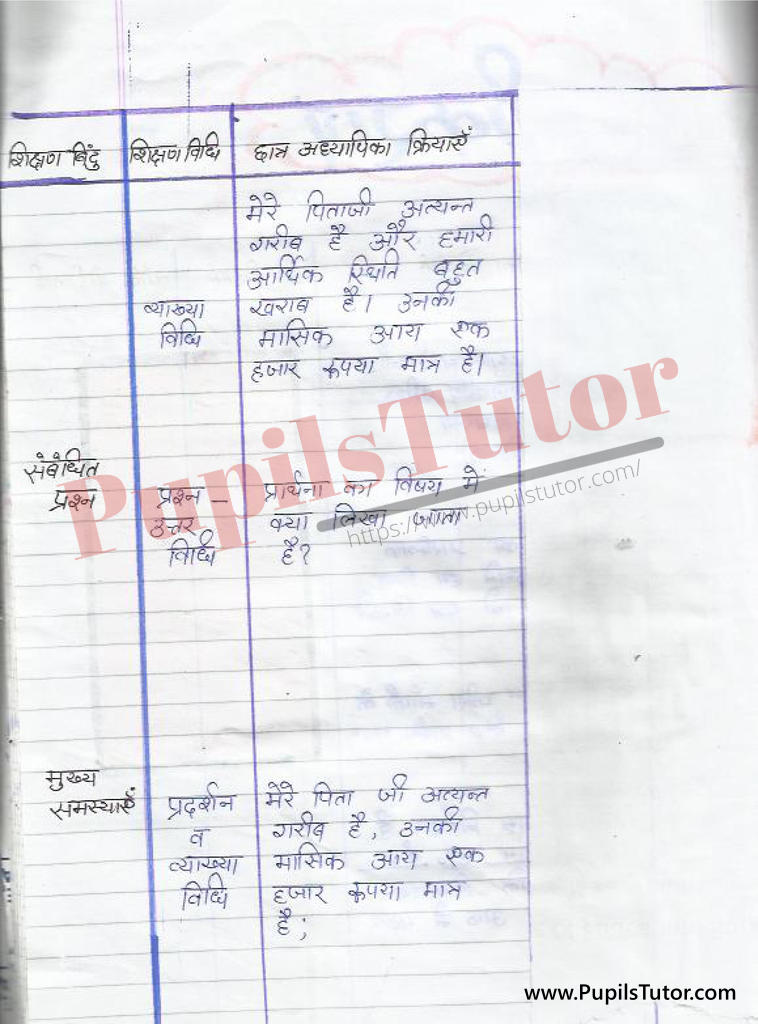 शिक्षण बिंदु शिक्षण विधि छात्र अध्यापिका क्रियाएँ
मेरे पिताजी अत्यन्त
गरीब है और हमारी
आर्थिक स्थिति बहुत
व्याख्या खराब है। उनकी
विधि मासिक आय एक
हजार रूपया मात्र है।
PupilsTutor
संबोधित
प्रश्न प्रश्न - प्रार्थना का विषय में
उत्तर क्या लिखा जाता
विधि है?
https://www.pupilstutor.com/
मुख्य
समस्याएँ प्रदर्शन मेरे पिता जी अत्यन्त
व गरीब है, उनकी
व्याख्या मासिक आय एक
विधि हजार रूपया मात्र
है;
www.PupilsTutor.com